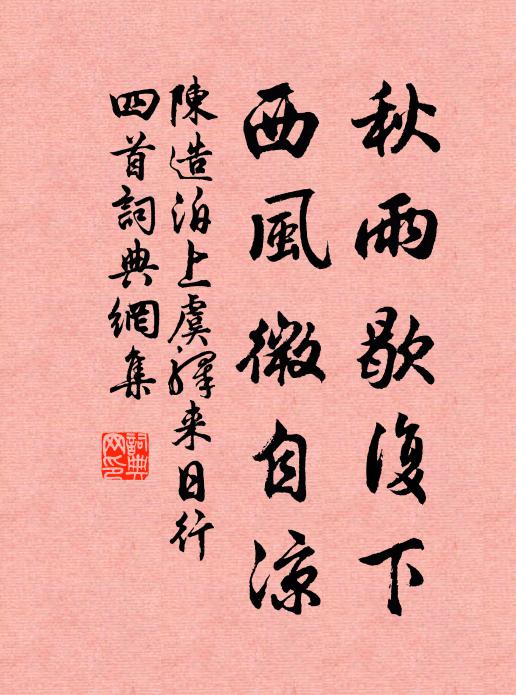 秋雨歇復下
西風微自涼
陳造泊上虞驛来日行
四首詞典網集
詞典網印